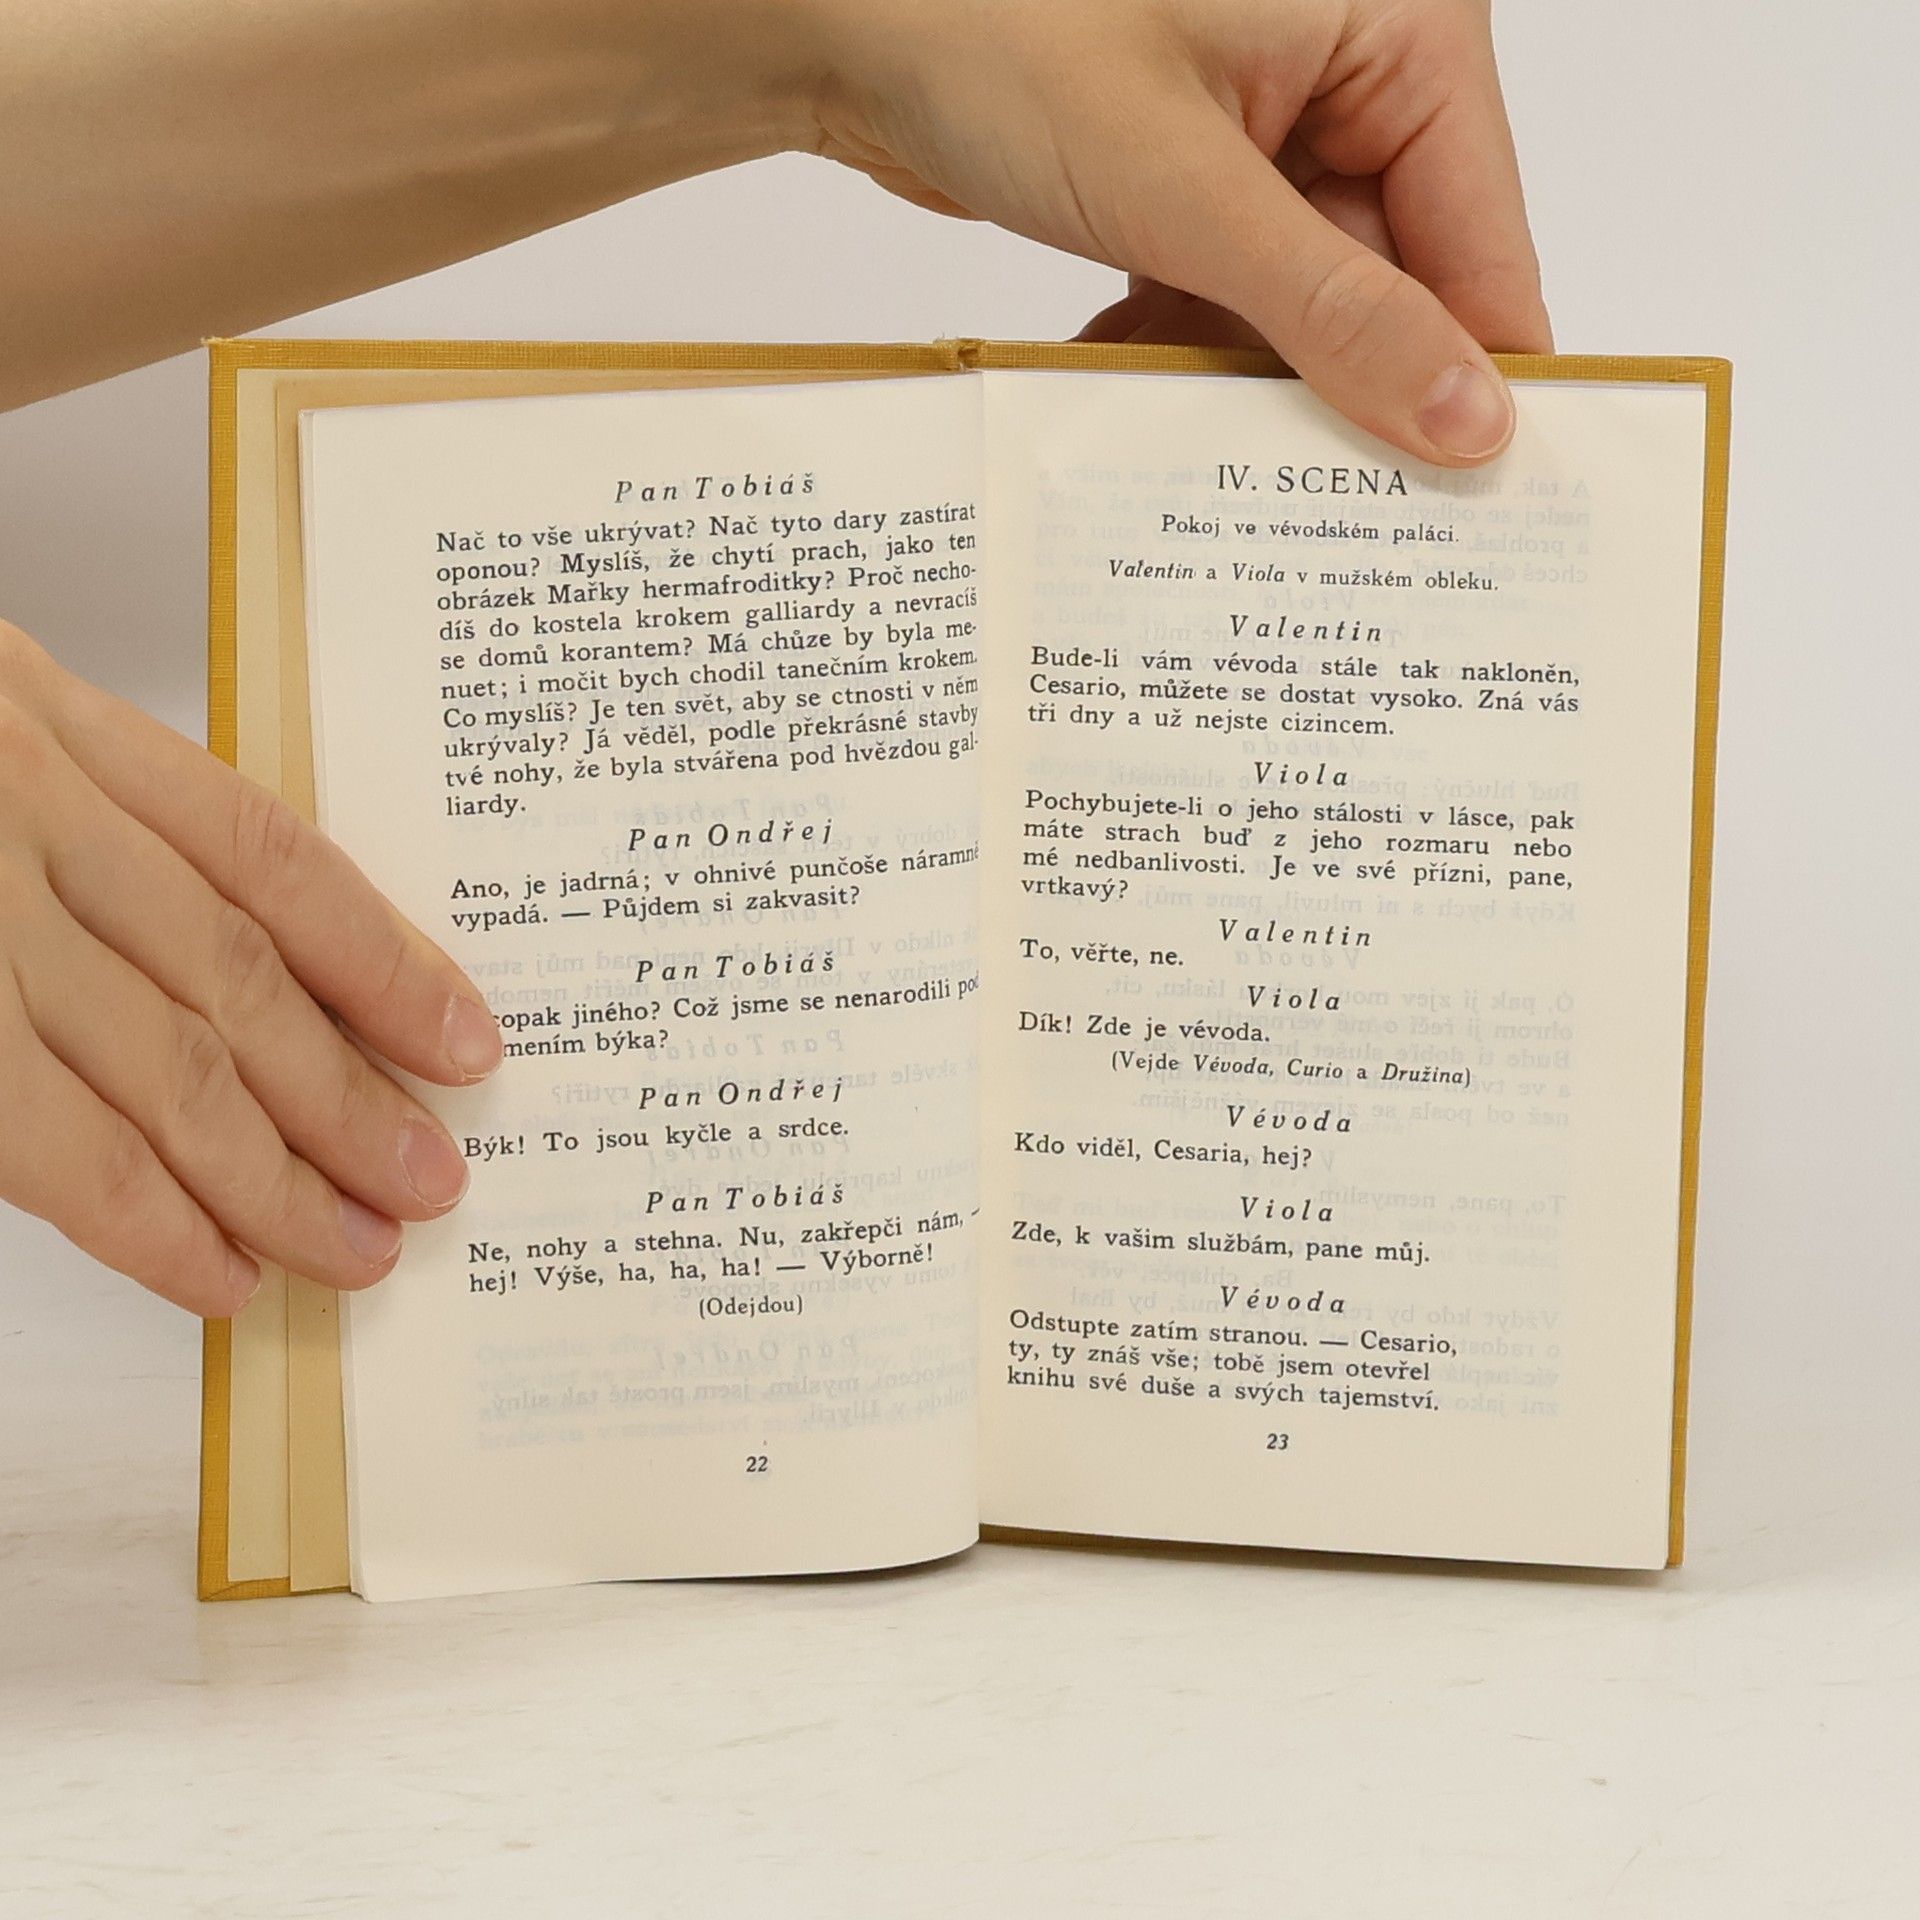 Pan Tobiáš
Nač to vše ukrývat? Nač tyto dary zastírat
oponou? Myslíš, že chytí prach, jako ten
obrázek Mařky hermafroditky? Proč necho-
díš do kostela krokem galliardy a nevracíš
se domů korantem? Má chůze by byla me-
nuet; i močit bych chodil tanečním krokem.
Co myslíš? Je ten svět, aby se ctnosti v něm
ukrývaly? Já věděl, podle překrásné stavby
tvé nohy, že byla stvářena pod hvězdou gal-
liardy.
Pan Ondřej
Ano, je jadrná; v ohnivé punčoše náramně
vypadá. — Půjdem si zakvasit?
Pan Tobiáš
copak jiného? Což jsme se nenarodili pod
býka?
Pan Ondřej
Býk! To jsou kyčle a srdce.
Pan Tobiáš
Ne, nohy a stehna. Nu, zakřepči nám, —
hej! Výše, ha, ha, ha! — Výborně!
(Odejdou)
22
IV. SCENA
Pokoj ve vévodském paláci.
Valentin a Viola v mužském obleku.
Valentin
Bude-li vám vévoda stále tak nakloněn,
Cesario, můžete se dostat vysoko. Zná vás
tři dny a už nejste cizincem.
Viola
Pochybujete-li o jeho stálosti v lásce, pak
máte strach buď z jeho rozmaru nebo
mé nedbanlivosti. Je ve své přízni, pane,
vrtkavý?
Valentin
To, věřte, ne.
Viola
Dík! Zde je vévoda.
(Vejde Vévoda, Curio a Družina)
Vévoda
Kdo viděl, Cesaria, hej?
Viola
Zde, k vašim službám, pane můj.
Vévoda
Odstupte zatím stranou. — Cesario,
ty, ty znáš vše; tobě jsem otevřel
knihu své duše a svých tajemství.
23